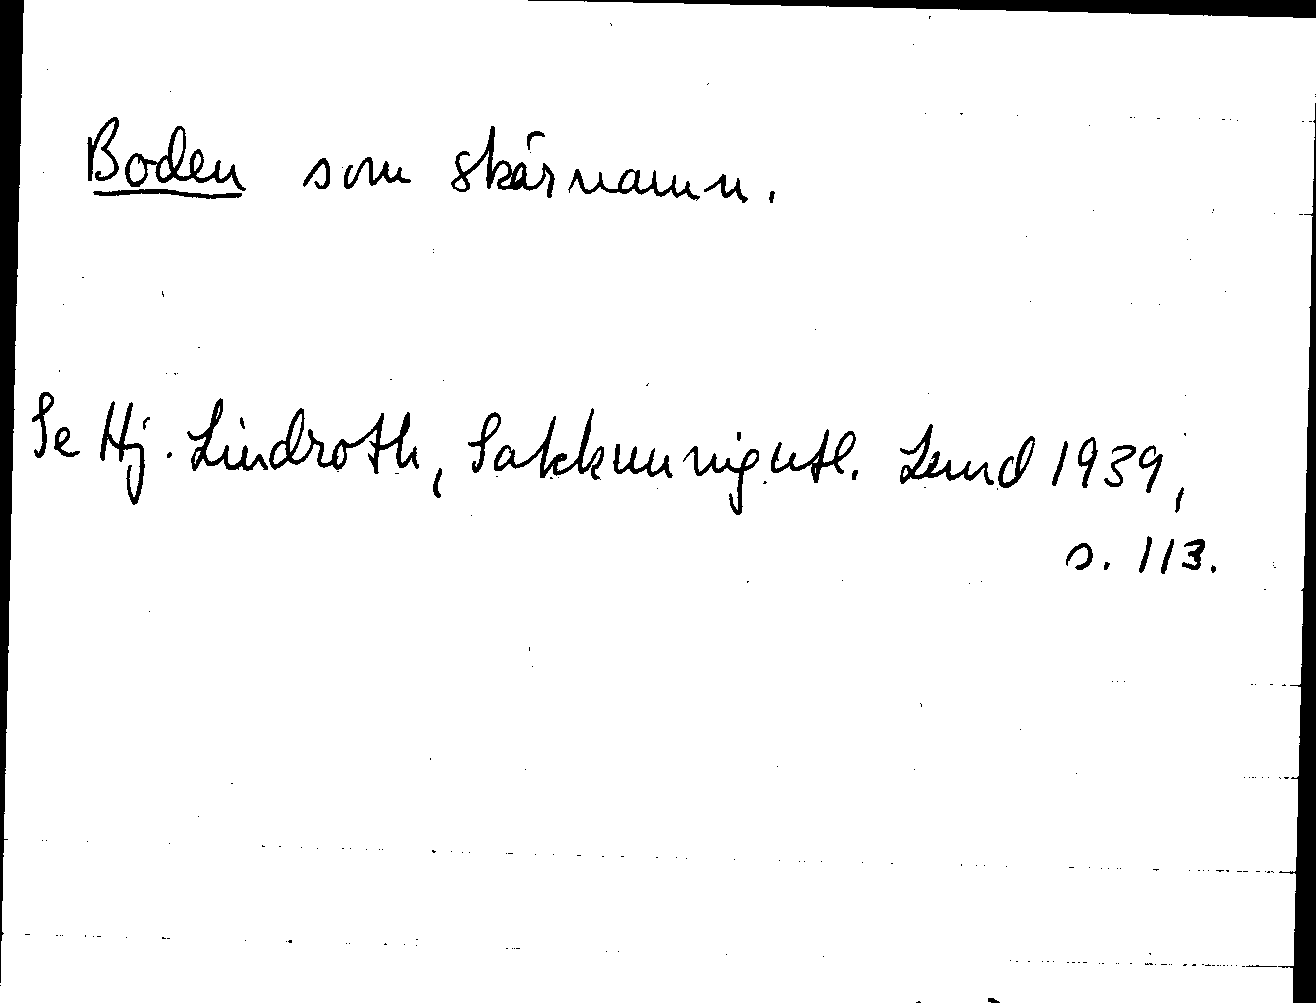 Boden som skärnamn.
Se Hj. Lindroth, Sakkunnigutl. Lund 1939,
s. 113.